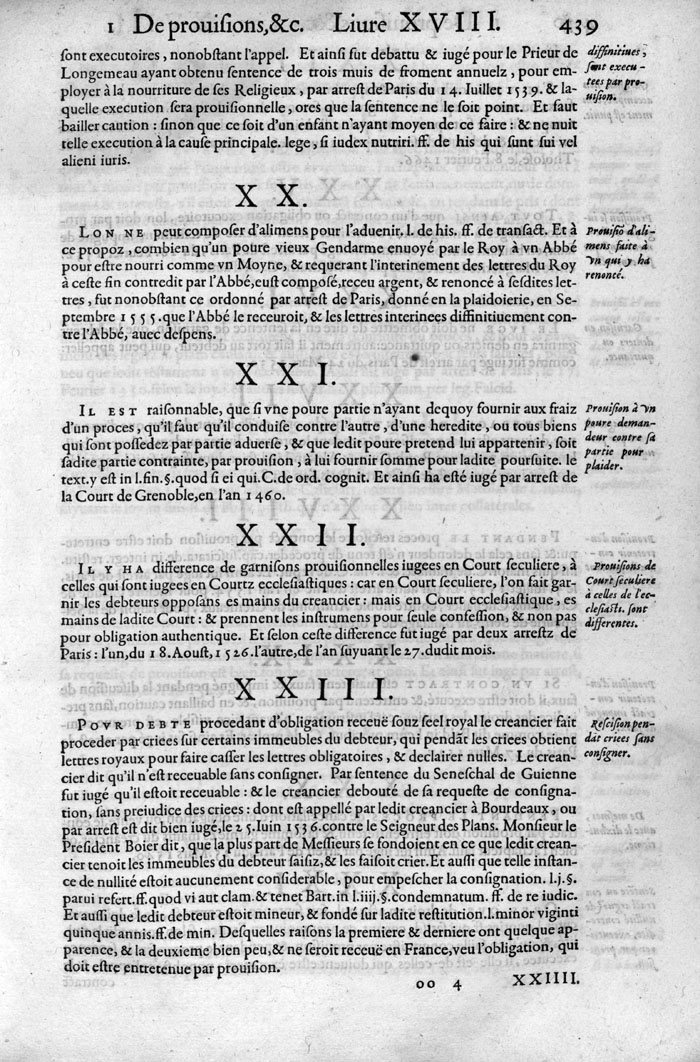 1 De prouisions, &c. Liure XVIII. 439
sont executoires, nonobstant l'appel. Et ainsi fut debattu & iugé pour le Prieur de
Longemeau ayant obtenu sentence de trois muis de froment annuelz, pour em-
ployer à la nourriture de ses Religieux, par arrest de Paris du 14. Iuillet 1539. & la-
quelle execution sera prouisionnelle, ores que la sentence ne le soit point. Et faut
bailler caution : sinon que ce soit d'un enfant n'ayant moyen de ce faire : & ne nuit
telle execution à la cause principale. lege, si iudex nutriri. ff. de his qui sunt sui vel
alieni iuris.
diffinitiues,
sont execu-
tees par pro-
uision.
XX.
LON NE peut composer d'alimens pour l'aduenir. l. de his. ff. de transact. Et à
ce propoz, combien qu'un poure vieux Gendarme enuoyé par le Roy à vn Abbé
pour estre nourri comme vn Moyne, & requerant l'interinement des lettres du Roy
à ceste fin contredit par l'Abbé, eust composé, receu argent, & renoncé à sesdites let-
tres, fut nonobstant ce ordonné par arrest de Paris, donné en la plaidoierie, en Se-
ptembre 1555. que l'Abbé le receuroit, & les lettres interinees diffinitiuement con-
tre l'Abbé, auec despens.
Prouisiō d'ali-
mens faite à
vn qui y ha
renoncé.
XXI.
IL EST raisonnable, que si vne poure partie n'ayant dequoy fournir aux fraiz
d'un proces, qu'il faut qu'il conduise contre l'autre, d'une heredite, ou tous biens
qui sont possedez par partie aduerse, & que ledit poure pretend lui appartenir, soit
sadite partie contrainte, par prouision, à lui fournir somme pour ladite poursuite. le
text. y est in l. fin. §. quod si ei qui. C. de ord. cognit. Et ainsi ha esté iugé par arrest de
la Court de Grenoble, en l'an 1460.
Prouision à vn
poure deman-
deur contre sa
partie pour
plaider.
XXII.
IL Y HA difference de garnisons prouisionnelles iugees en Court seculiere, à
celles qui sont iugees en Courtz ecclesiastiques : car en Court seculiere, l'on fait gar-
nir les debteurs opposans es mains du creancier : mais en Court ecclesiastique, es
mains de ladite Court : & prennent les instrumens pour seule confession, & non pas
pour obligation authentique. Et selon ceste difference fut iugé par deux arrestz de
Paris : l'un, du 18. Aoust, 1526. l'autre, de l'an suyuant le 27. dudit mois.
Prouisions de
Court seculiere
à celles de l'ec-
clesiasts. sont
differentes.
XXIII.
POVR DEBTE procedant d'obligation receuë souz seel royal le creancier fait
proceder par criees sur certains immeubles du debteur, qui pendāt les criees obtient
lettres royaux pour faire casser les lettres obligatoires, & declairer nulles. Le crean-
cier dit qu'il n'est receuable sans consigner. Par sentence du Seneschal de Guienne
fut iugé qu'il estoit receuable : & le creancier debouté de sa requeste de consigna-
tion, sans preiudice des criees : dont est appellé par ledit creancier à Bourdeaux, ou
par arrest est dit bien iugé, le 25. Iuin 1536. contre le Seigneur des Plans. Monsieur le
President Boier dit, que la plus part de Messieurs se fondoient en ce que ledit crean-
cier tenoit les immeubles du debteur saisiz, & les faisoit crier. Et aussi que telle instan-
ce de nullité estoit aucunement considerable, pour empescher la consignation. l. j. §.
parui refert. ff. quod vi aut clam. & tenet Bart. in l. iiij. §. condemnatum. ff. de re iudic.
Et aussi que ledit debteur estoit mineur, & fondé sur ladite restitution. l. minor viginti
quinque annis. ff. de min. Desquelles raisons la premiere & derniere ont quelque ap-
parence, & la deuxieme bien peu, & ne seroit receuë en France, veu l'obligation, qui
doit estre entretenue par prouision.
Rescision pen-
dāt criees sans
consigner.
oo 4 XXIIII.